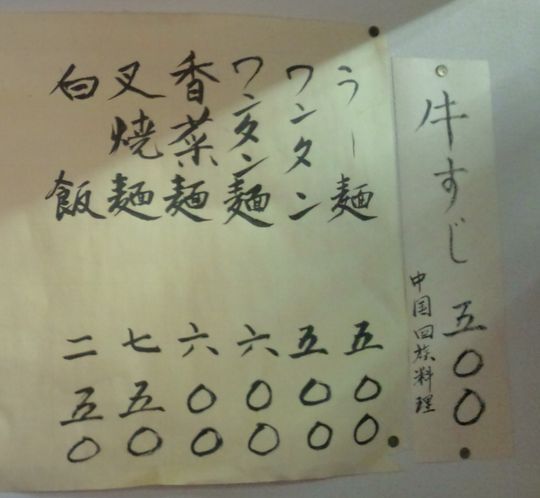 牛すじ 五〇〇
中国回族料理
らー麺 五〇〇
ワンタン 五〇〇
ワンタン麺 六〇〇
香菜麺 六〇〇
叉焼麺 七五〇
白飯 二五〇